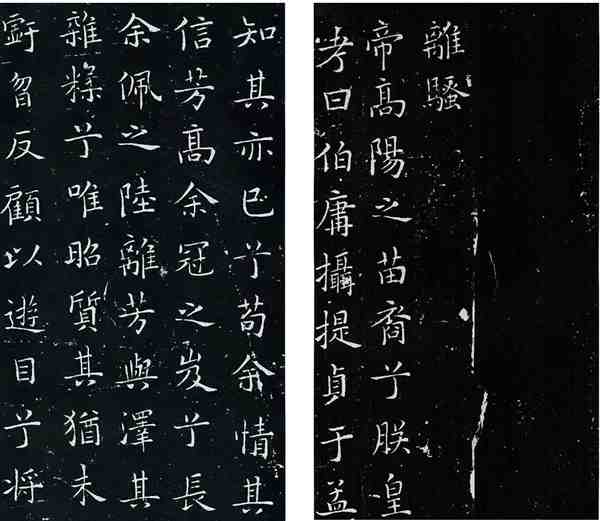 離騷
帝髙陽之苗裔兮朕皇
考曰伯庸攝提貞于孟
知其亦已兮苟余情其
信芳髙余冠之岌兮長
余佩之陸離芳與澤其
雜糅兮唯昭質其猶未
虧曶反顧以遊目兮将